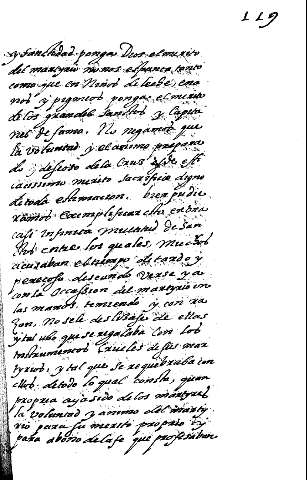 119
y sanctidad ponga Dios el merito
del martyrio no nos espanta, tanto
como que en Niños de leche, ena
nos y pequeños ponga el merito
de los grandes Sanctos y Capita
nes de fama. No negamos que
la voluntad y el animo prepara
do y deseoso de la Cruz, es de efi
cacissimo merito sacrificio digno
de toda estimacion. bien pudie
ramos exemplificar esto en tra
casi infinita multitud de San
ctos entre los quales, muchos
acusaban el tiempo de tardo y
pereçoso deseando verse ya
con la occassion del martyrio en
las manos, temiendo y con ra
zon. No se les deslizase de ellas
y tal ubo que se regalaba con los
instrumentos crueles de su mar
tyrio, y tal que se requebraba con
ellos. de todo lo qual consta, quan
propria aya sido de los martyres
la voluntad y animo del marty
rio para su merito proprio y
para abono de la fe que professaban